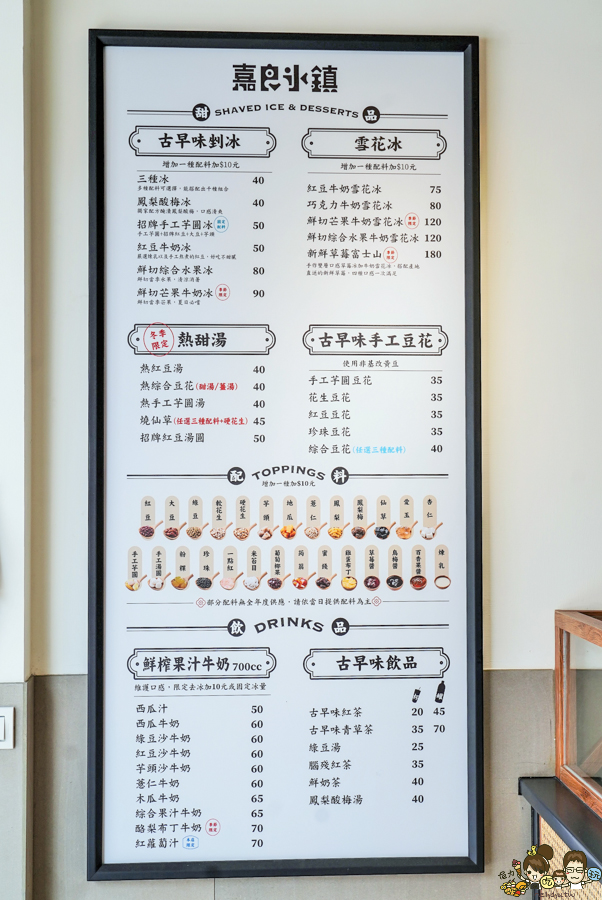 嘉良冰鎮
甜 SHAVED ICE & DESSERTS 品
古早味剉冰
增加一種配料加$10元
三種冰 40
多種配料可選擇，能搭配出千種組合
鳳梨酸梅冰 40
獨家配方醃漬鳳梨酸梅，口感清爽
招牌手工芋圓冰 50
手工芋圓+招牌紅豆+大豆+芋頭
紅豆牛奶冰 50
鮮切綜合水果冰 80
鮮切當季水果，清涼消暑
鮮切芒果牛奶冰 季節限定 90
鮮切當季芒果，夏日必嚐
雪花冰
增加一種配料加$10元
紅豆牛奶雪花冰 75
巧克力牛奶雪花冰 80
鮮切芒果牛奶雪花冰 季節限定 120
鮮切綜合水果牛奶雪花冰 120
新鮮草莓富士山 季節限定 180
冬季限定 熱甜湯
熱紅豆湯 40
熱綜合豆花(甜湯/薑湯) 40
熱手工芋圓湯 40
燒仙草(任選三種配料+硬花生) 45
招牌紅豆湯圓 50
古早味手工豆花
使用非基改黃豆
手工芋圓豆花 35
花生豆花 35
紅豆豆花 35
珍珠豆花 35
綜合豆花(任選三種配料) 40
配 TOPPINGS 料
增加一種加$10元
紅豆 大豆 綠豆 軟花生 硬花生 芋頭 地瓜 薏仁 鳳梨 鳳梨梅 仙草 愛玉 杏仁
手工芋圓 手工湯圓 粉粿 珍珠 一點紅 米苔目 葡萄椰果 蒟蒻 蜜餞 雞蛋布丁 草莓醬 烏梅醬 百香果醬 煉乳
部分配料無全年度供應，請依當日提供配料為主
飲 DRINKS 品
鮮榨果汁牛奶 700cc
維護口感，限定去冰加10元或固定冰量
西瓜汁 50
西瓜牛奶 60
綠豆沙牛奶 60
紅豆沙牛奶 60
芋頭沙牛奶 60
薏仁牛奶 60
木瓜牛奶 65
綜合果汁牛奶 65
酪梨布丁牛奶 季節限定 70
紅蘿蔔汁 70
古早味飲品
古早味紅茶 20 45
古早味青草茶 35 70
綠豆湯 25
腦殘紅茶 35
鮮奶茶 40
鳳梨酸梅湯 40